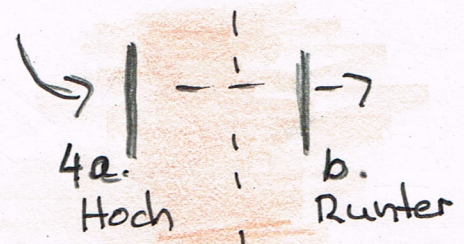 4a.
Hoch
b.
Runter